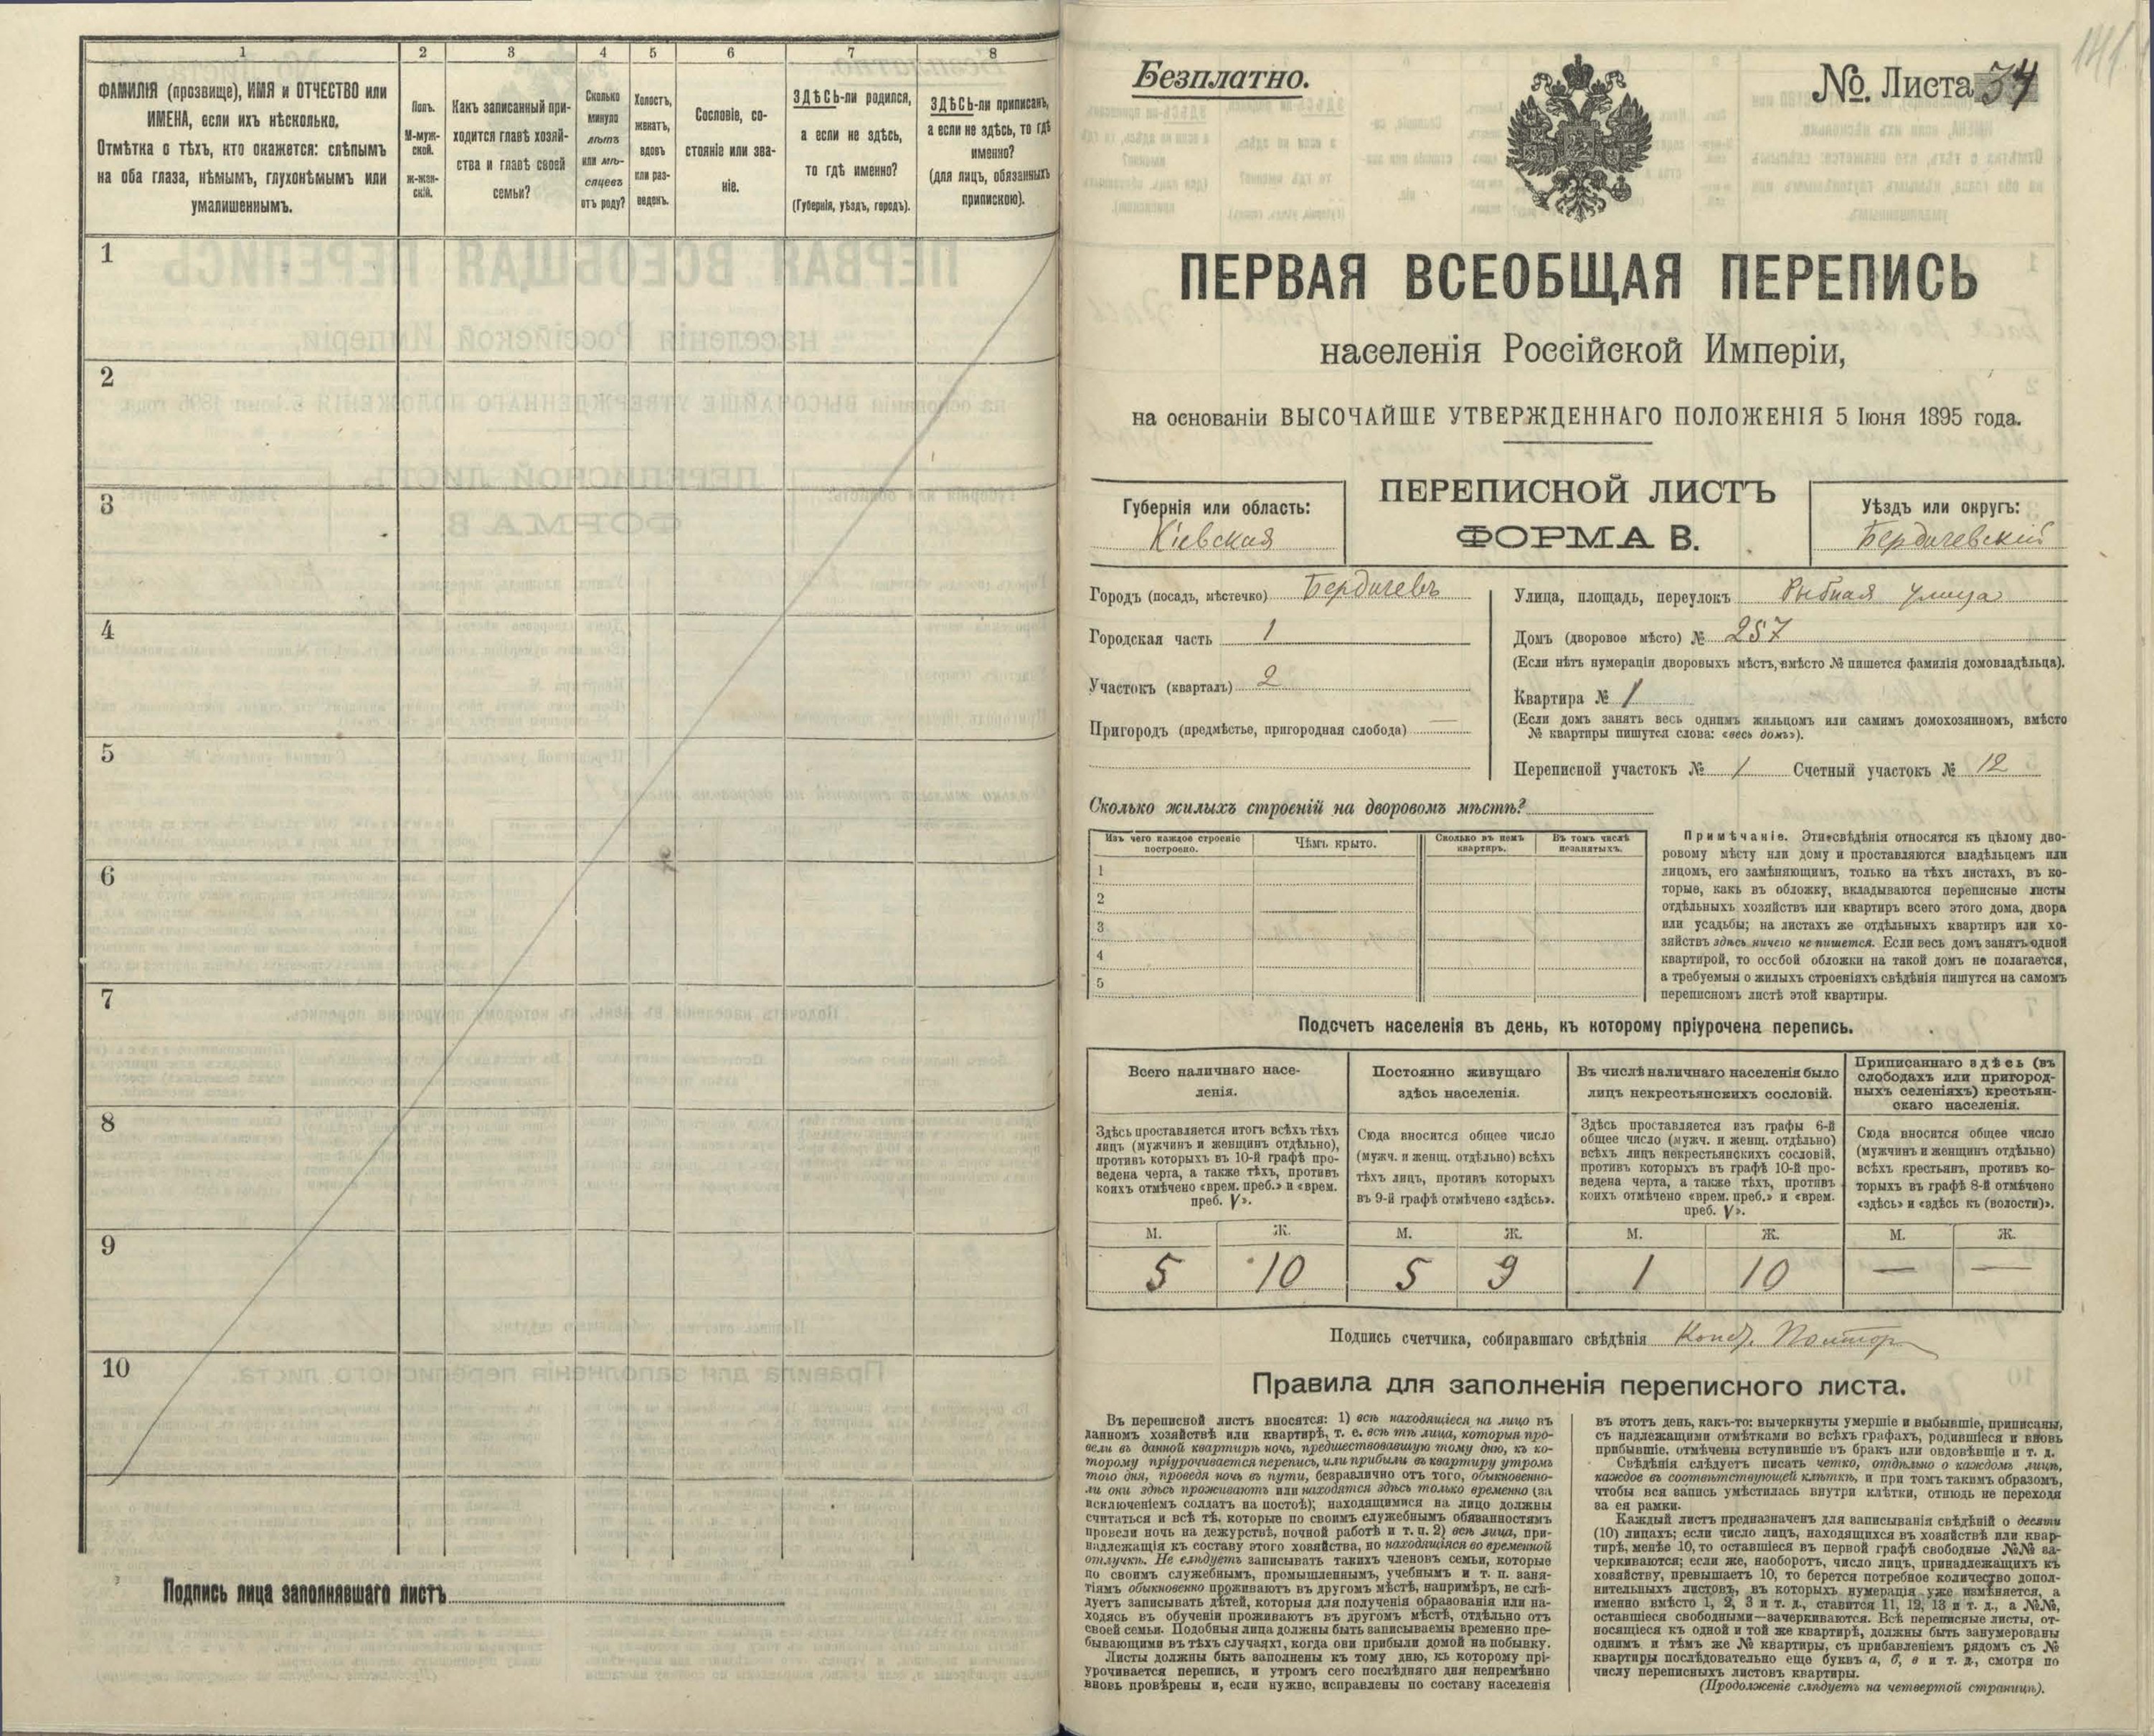 1
2
3
4
5
6
7
8
ФАМИЛІЯ (прозвище), ИМЯ и ОТЧЕСТВО или
ИМЕНА, если ихъ нѣсколько.
Отмѣтка о тѣхъ, кто окажется: слѣпымъ
на оба глаза, нѣмымъ, глухонѣмымъ или
умалишеннымъ.
Полъ.
М-муж-
ской.
ж-жен-
скій.
Какъ записанный при-
ходится главѣ хозяй-
ства и главѣ своей
семьи?
Сколько
минуло
лѣтъ
или мѣ-
сяцевъ
отъ роду?
Холостъ,
женатъ,
вдовъ
или раз-
веденъ.
Сословіе, со-
стояніе или зва-
ніе.
ЗДѢСЬ-ли родился,
а если не здѣсь,
то гдѣ именно?
(Губернія, уѣздъ, городъ).
ЗДѢСЬ-ли приписанъ,
а если не здѣсь, то гдѣ
именно?
(для лицъ, обязанныхъ
припискою).
1
2
3
4
5
6
7
8
9
10
Подпись лица заполнявшаго листъ
Безплатно.
№. Листа 34
141
ПЕРВАЯ ВСЕОБЩАЯ ПЕРЕПИСЬ
населенія Россійской Имперіи,
на основаніи ВЫСОЧАЙШЕ УТВЕРЖДЕННАГО ПОЛОЖЕНІЯ 5 Іюня 1895 года.
Губернія или область:
Кіевская
ПЕРЕПИСНОЙ ЛИСТЪ
ФОРМА В.
Уѣздъ или округъ:
Бердичевскій
Городъ (посадъ, мѣстечко) Бердичевъ
Городская часть 1
Участокъ (кварталъ) 2
Пригородъ (предмѣстье, пригородная слобода) —
Улица, площадь, переулокъ Рыбная улица
Домъ (дворовое мѣсто) № 257
(Если нѣтъ нумераціи дворовыхъ мѣстъ, вмѣсто № пишется фамилія домовладѣльца).
Квартира № 1
(Если домъ занятъ весь однимъ жильцомъ или самимъ домохозяиномъ, вмѣсто
№ квартиры пишутся слова: «весь домъ»).
Переписной участокъ № 1 Счетный участокъ № 12
Сколько жилыхъ строеній на дворовомъ мѣстѣ?
Изъ чего каждое строеніе
построено.
Чѣмъ крыто.
Сколько въ немъ
квартиръ.
Въ томъ числѣ
незанятыхъ.
1
2
3
4
5
Примѣчаніе. Эти свѣдѣнія относятся къ цѣлому дво-
ровому мѣсту или дому и проставляются владѣльцемъ или
лицомъ, его замѣняющимъ, только на тѣхъ листахъ, въ ко-
торые, какъ въ обложку, вкладываются переписные листы
отдѣльныхъ хозяйствъ или квартиръ всего этого дома, двора
или усадьбы; на листахъ же отдѣльныхъ квартиръ или хо-
зяйствъ здѣсь ничего не пишется. Если весь домъ занятъ одной
квартирой, то особой обложки на такой домъ не полагается,
а требуемыя о жилыхъ строеніяхъ свѣдѣнія пишутся на самомъ
переписномъ листѣ этой квартиры.
Подсчетъ населенія въ день, къ которому пріурочена перепись.
Всего наличнаго насе-
ленія.
Постоянно живущаго
здѣсь населенія.
Въ числѣ наличнаго населенія было
лицъ некрестьянскихъ сословій.
Приписаннаго здѣсь (въ
слободахъ или пригород-
ныхъ селеніяхъ) крестьян-
скаго населенія.
Здѣсь проставляется итогъ всѣхъ тѣхъ
лицъ (мужчинъ и женщинъ отдѣльно),
противъ которыхъ въ 10-й графѣ про-
ведена черта, а также тѣхъ, противъ
коихъ отмѣчено «врем. преб.» и «врем.
преб. V».
Сюда вносится общее число
(мужч. и женщ. отдѣльно) всѣхъ
тѣхъ лицъ, противъ которыхъ
въ 9-й графѣ отмѣчено «здѣсь».
Здѣсь проставляется изъ графы 6-й
общее число (мужч. и женщ. отдѣльно)
всѣхъ лицъ некрестьянскихъ сословій,
противъ которыхъ въ графѣ 10-й про-
ведена черта, а также тѣхъ, противъ
коихъ отмѣчено «врем. преб.» и «врем.
преб. V».
Сюда вносится общее число
(мужчинъ и женщинъ отдѣльно)
всѣхъ крестьянъ, противъ ко-
торыхъ въ графѣ 8-й отмѣчено
«здѣсь» и «здѣсь къ (волости)».
М. Ж. М. Ж. М. Ж. М. Ж.
5 10 5 9 1 10 — —
Подпись счетчика, собиравшаго свѣдѣнія
Правила для заполненія переписного листа.
Въ переписной листъ вносятся: 1) всѣ находящіеся на лицо въ
данномъ хозяйствѣ или квартирѣ, т. е. всѣ тѣ лица, которыя про-
вели въ данной квартирѣ ночь, предшествовавшую тому дню, къ ко-
торому пріурочивается перепись, или прибыли въ квартиру утромъ
того дня, проведя ночь въ пути, безразлично отъ того, обыкновенно-
ли они здѣсь проживаютъ или находятся здѣсь только временно (за
исключеніемъ солдатъ на постоѣ); находящимися на лицо должны
считаться и всѣ тѣ, которые по своимъ служебнымъ обязанностямъ
провели ночь на дежурствѣ, ночной работѣ и т. п. 2) всѣ лица, при-
надлежащія къ составу этого хозяйства, но находящіяся во временной
отлучкѣ. Не слѣдуетъ записывать такихъ членовъ семьи, которые
по своимъ служебнымъ, промышленнымъ, учебнымъ и т. п. заня-
тіямъ обыкновенно проживаютъ въ другомъ мѣстѣ, напримѣръ, не слѣ-
дуетъ записывать дѣтей, которыя для полученія образованія или на-
ходясь въ обученіи проживаютъ въ другомъ мѣстѣ, отдѣльно отъ
своей семьи. Подобныя лица должны быть записываемы временно пре-
бывающими въ тѣхъ случаяхъ, когда они прибыли домой на побывку.
Листы должны быть заполнены къ тому дню, къ которому прі-
урочивается перепись, и утромъ сего послѣдняго дня непремѣнно
вновь провѣрены и, если нужно, исправлены по составу населенія
въ этотъ день, какъ-то: вычеркнуты умершіе и выбывшіе, приписаны,
съ надлежащими отмѣтками во всѣхъ графахъ, родившіеся и вновь
прибывшіе, отмѣчены вступившіе въ бракъ или овдовѣвшіе и т. д.
Свѣдѣнія слѣдуетъ писать четко, отдѣльно о каждомъ лицѣ,
каждое въ соотвѣтствующей клѣткѣ, и при томъ такимъ образомъ,
чтобы вся запись умѣстилась внутри клѣтки, отнюдь не переходя
за ея рамки.
Каждый листъ предназначенъ для записыванія свѣдѣній о десяти
(10) лицахъ; если число лицъ, находящихся въ хозяйствѣ или квар-
тирѣ, менѣе 10, то оставшіеся въ первой графѣ свободные №№ за-
черкиваются; если же, наоборотъ, число лицъ, принадлежащихъ къ
хозяйству, превышаетъ 10, то берется потребное количество допол-
нительныхъ листовъ, въ которыхъ нумерація уже измѣняется, а
именно вмѣсто 1, 2, 3 и т. д., ставится 11, 12, 13 и т. д., а №№,
оставшіеся свободными—зачеркиваются. Всѣ переписные листы, от-
носящіеся къ одной и той же квартирѣ, должны быть занумерованы
однимъ и тѣмъ же № квартиры, съ прибавленіемъ рядомъ съ №
квартиры последовательно еще буквъ а, б, в и т. д., смотря по
числу переписныхъ листовъ квартиры.
(Продолженіе слѣдуетъ на четвертой страницѣ).